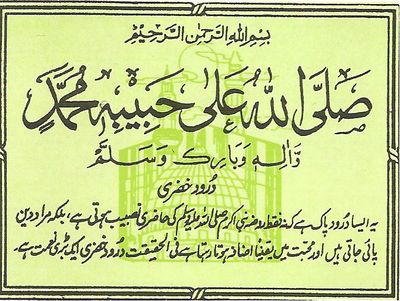 بسم الله الرحمن الرحيم
صَلَّى اللهُ عَلٰى حَبِيْبِهٖ مُحَمَّدٍ
وَّاٰلِهٖ وَبَارِكْ وَسَلَّمْ
درود خضری
یہ ایسا درود پاک ہے کہ نہ فقط روضہ نبی اکرم صلی اللہ علیہ وسلم کی حاضری نصیب ہوتی ہے، بلکہ مراد دین
پائی جاتی ہیں اور محبت میں یقینا اضافہ ہوتا رہتا ہے فی الحقیقت درود خضری ایک بڑی نعمت ہے۔